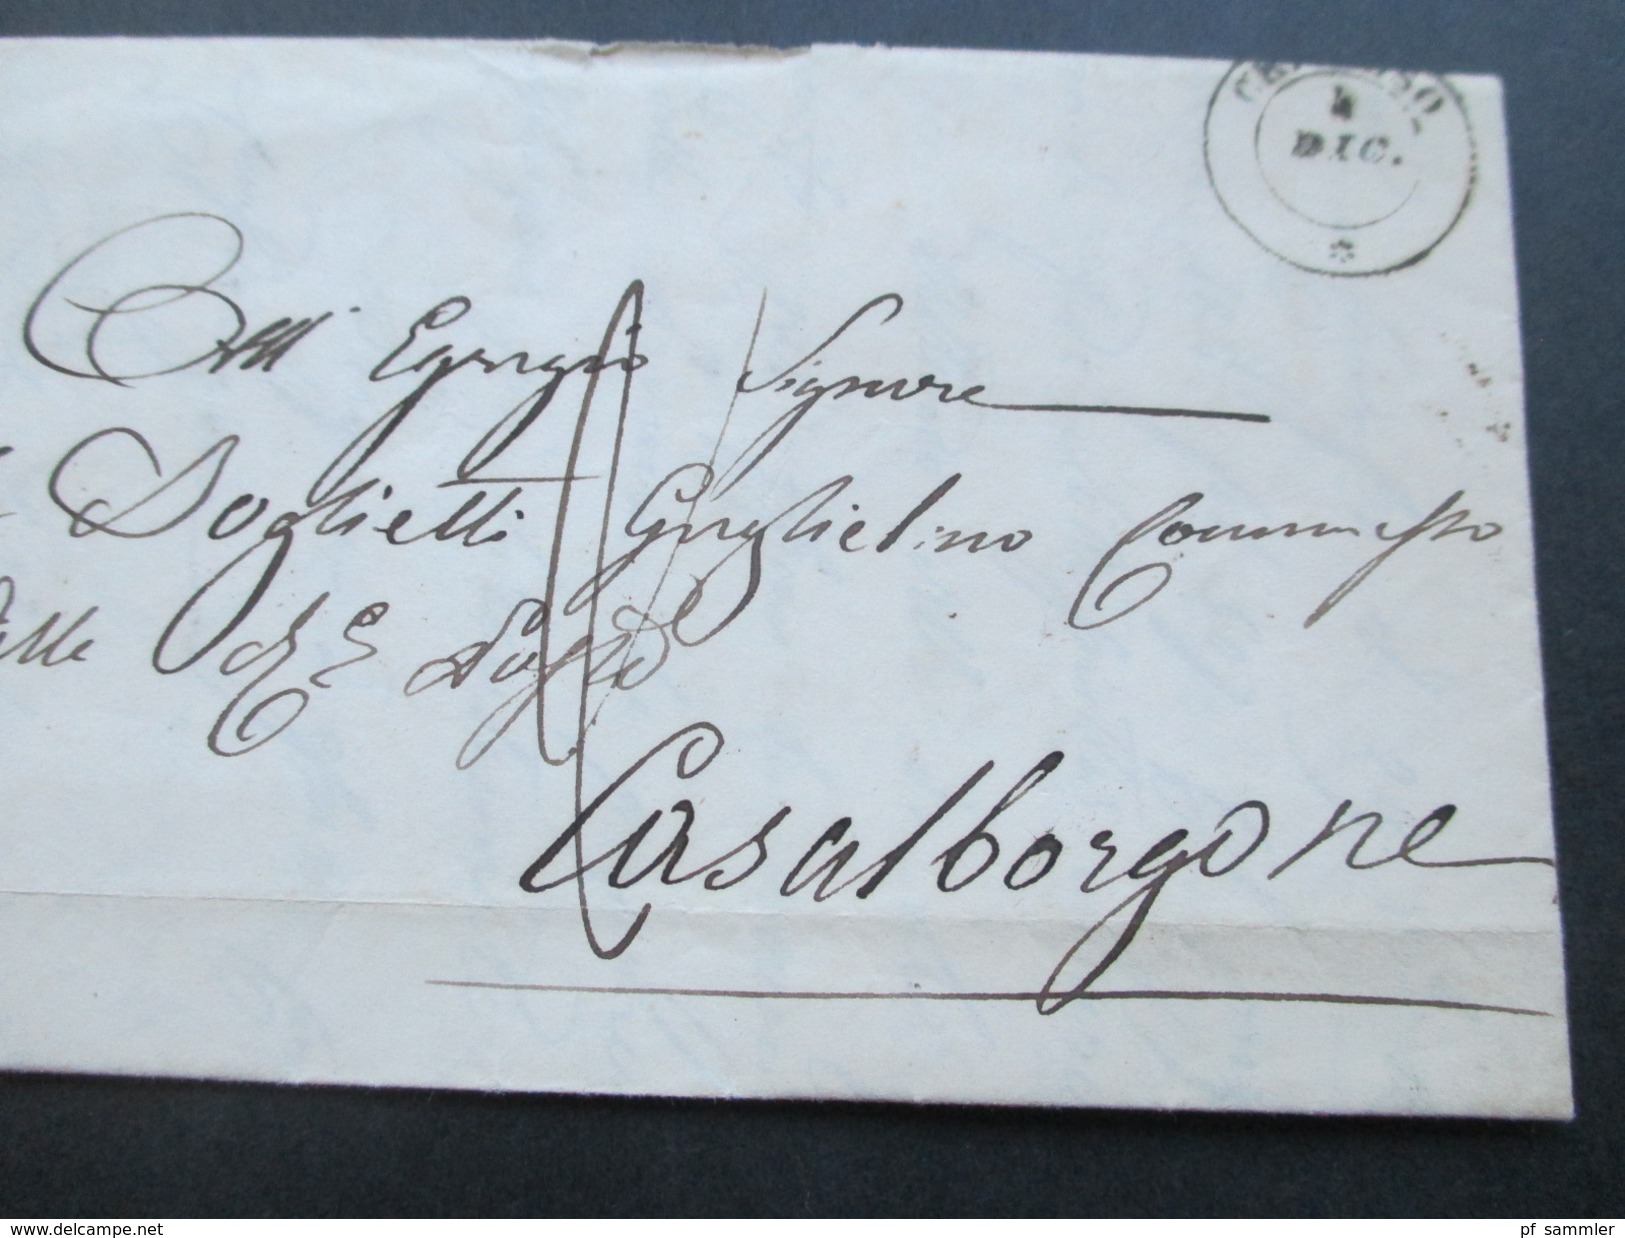 DIC.
All' Egregio Signore
Soglietti Guglielmino Commesso
alle
Casalborgone
www.delcampe.net
pf_sammler